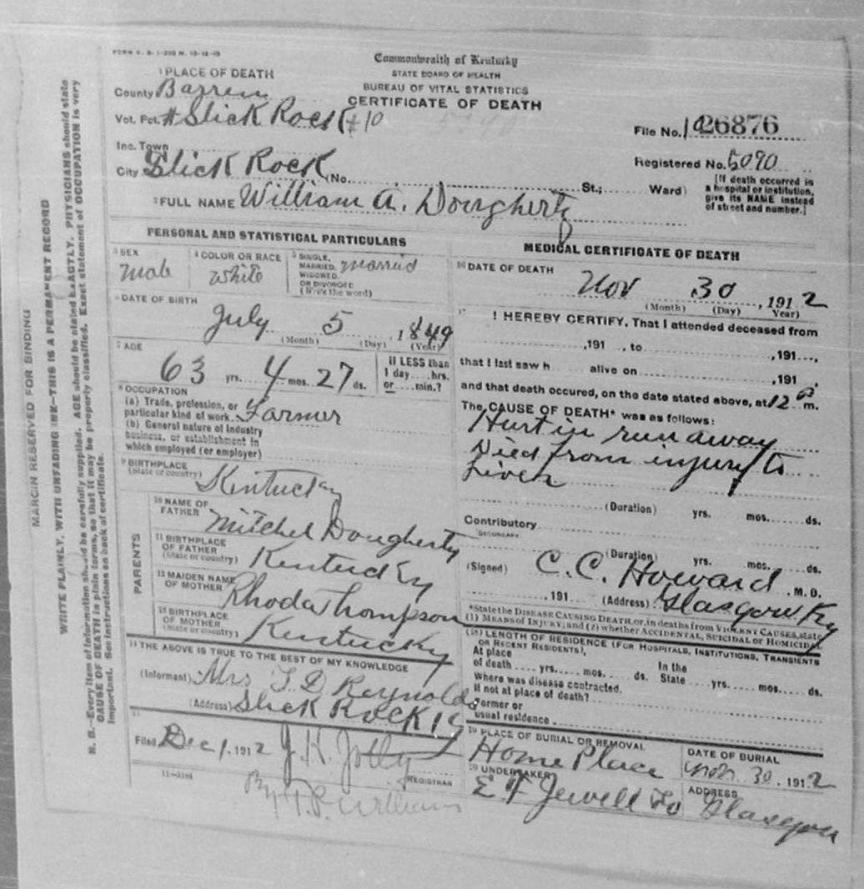 FORM V. S. 1-
Commonwealth of Kentucky
STATE BOARD OF HEALTH
BUREAU OF VITAL STATISTICS
CERTIFICATE OF DEATH
1 PLACE OF DEATH
County Barren
Vot. Pct. # Slick Rock #10
Inc. Town
City Slick Rock (No. St.; Ward)
File No. 26876
Registered No. 5090
[If death occurred in
a hospital or institution,
give its NAME instead
of street and number.]
2 FULL NAME William A. Dougherty
PERSONAL AND STATISTICAL PARTICULARS
3 SEX
Male
4 COLOR OR RACE
White
5 SINGLE,
MARRIED,
WIDOWED,
OR DIVORCED
(Write the word)
Married
6 DATE OF BIRTH
July 5, 1849
(Month) (Day) (Year)
7 AGE
63 yrs. 4 mos. 27 ds.
If LESS than
1 day....hrs.
or....min.?
8 OCCUPATION
(a) Trade, profession, or
particular kind of work Farmer
(b) General nature of industry
business, or establishment in
which employed (or employer)
9 BIRTHPLACE
(State or country)
Kentucky
PARENTS
10 NAME OF
FATHER
Mitchel Dougherty
11 BIRTHPLACE
OF FATHER
(State or country)
Kentucky
12 MAIDEN NAME
OF MOTHER
Rhoda Thompson
13 BIRTHPLACE
OF MOTHER
(State or country)
Kentucky
14 THE ABOVE IS TRUE TO THE BEST OF MY KNOWLEDGE
(Informant) Mrs T. D. Reynolds
(Address) Slick Rock Ky
15
Filed Dec 1, 1912 J. K. Jolly
REGISTRAR
By T. P. Williams
11-3184
MEDICAL CERTIFICATE OF DEATH
16 DATE OF DEATH
Nov 30, 1912
(Month) (Day) Year)
17 I HEREBY CERTIFY, That I attended deceased from
,191 , to ,191 ,
that I last saw h alive on ,191 ,
and that death occured, on the date stated above, at 12 P m.
The CAUSE OF DEATH* was as follows:
Hurt in run away
Died from injury to
Liver
(Duration) yrs. mos. ds.
Contributory
SECONDARY
(Duration) yrs. mos. ds.
(Signed) C. C. Howard M. D.
, 191 (Address) Glasgow Ky
*State the DISEASE CAUSING DEATH, or, in deaths from VIOLENT CAUSES, state
(1) MEANS OF INJURY; and (2) whether ACCIDENTAL, SUICIDAL or HOMICIDAL
18) LENGTH OF RESIDENCE (FOR HOSPITALS, INSTITUTIONS, TRANSIENTS
OR RECENT RESIDENTS),
At place In the
of death yrs. mos. ds. State yrs. mos. ds.
Where was disease contracted,
If not at place of death?
Former or
usual residence
19 PLACE OF BURIAL OR REMOVAL
Home Place
DATE OF BURIAL
Nov. 30, 1912
20 UNDERTAKER
E F Jewell Co
ADDRESS
Glasgow
MARGIN RESERVED FOR BINDING
WRITE PLAINLY, WITH UNFADING INK—THIS IS A PERMANENT RECORD
N. B.—Every item of information should be carefully supplied. AGE should be stated EXACTLY. PHYSICIANS should state
CAUSE OF DEATH in plain terms, so that it may be properly classified. Exact statement of OCCUPATION is very
important. See instructions on back of certificate.